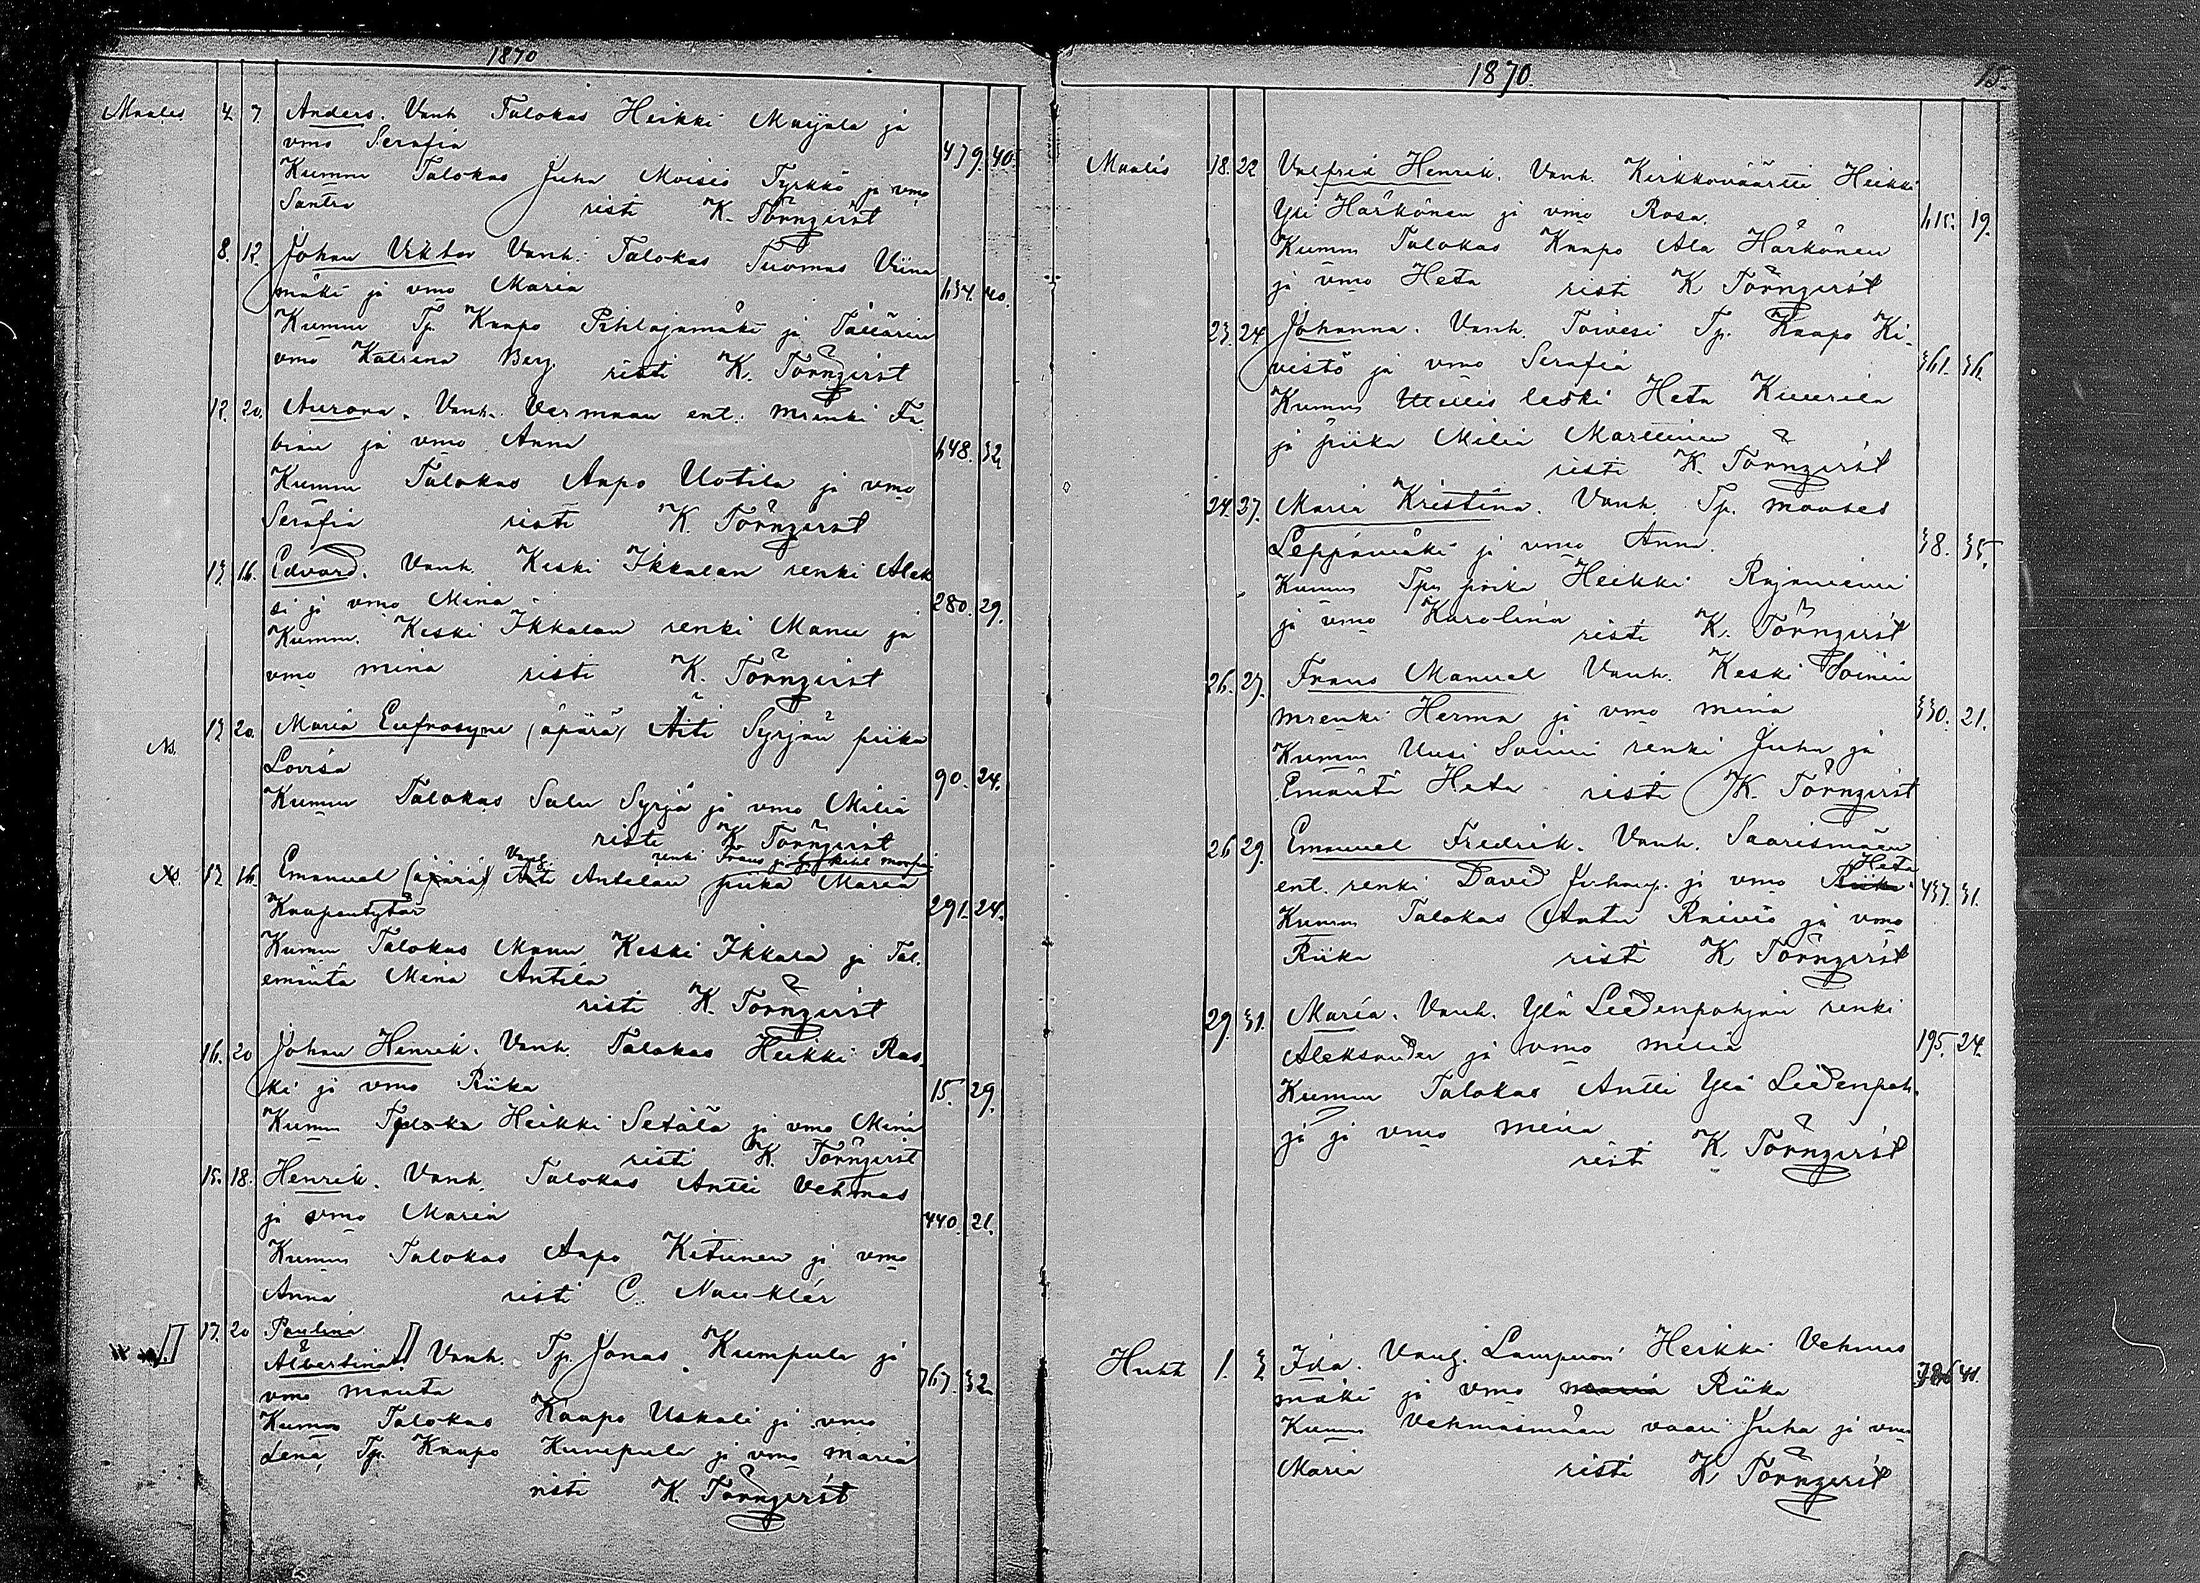 1870
Maalis 4. 7 Anders. Vanh. Talokas Heikki Maijala ja
vmo Serafia 479. 40.
Kumm Talokas Juha Moisio Tyrkkö ja vmo
Santra risti K. Törnqvist
8. 12. Johan Viktor Vanh. Talokas Tuomas Viina
mäki ja vmo Maria 634. 40.
Kumm Tp. Kaapo Pihlajamäki ja
vmo Katrina Berg. risti K. Törnqvist
12. 20. Aurora. Vanh. Varmaan ent. mrenki Fa-
bian ja vmo Anna 648. 32.
Kumm Talokas Aapo Uotila ja vmo
Serafia risti K. Törnqvist
13 16. Edvard. Vanh. Keski Ikkalan renki Alek
si ja vmo Mina 280. 29.
Kumm. Keski Ikkalan renki Manu ja
vmo mina risti K. Törnqvist
13 20. Maria Eufrosyne (äpärä) Äiti Syrjän piika
Lovisa 90. 24.
Kumm Talokas Salu Syrjä ja vmo Milia
risti K. Törnqvist
Vanh. renki Frans ja
13 16. Emanuel (äpärä) Äiti Antilan piika Maria
Kaapentytär 291. 24.
Kumm Talokas Manu Keski Ikkala ja Tal.
emäntä Mina Antila
risti K. Törnqvist
16. 20 Johan Henrik. Vanh. Talokas Heikki Ras
ki ja vmo Riika 15. 29.
Kumm Heikki Setälä ja vmo Mina
risti K. Törnqvist
15. 18. Henrik. Vanh. Talokas Antti Vehmas
ja vmo Maria 440. 21.
Kumm Talokas Aapo Ketunen ja vmo
Anna risti C. Nauklér
17. 20 Paulina
Albertina Vanh. Tp. Jonas Kumpula ja
vmo manta 767. 32.
Kumm Talokas Kaapo Uskali ja vmo
Lena, Tp. Kaapo Kumpula ja vmo maria
risti K. Törnqvist
1870. 15.
Maalis 18. 22 Valfrid Henrik. Vanh. Kirkkoväärtti Heikki
Yli Härkönen ja vmo Rosa. 615. 19.
Kumm Talokas Kaapo Ala Härkönen
ja vmo Heta risti K Törnqvist
23. 24 Johanna. Vanh. Toivesi Tp. Kaapo Ki-
vistö ja vmo Serafia 361. 36.
Kumm leski Heta Kuurila
ja piika Milia Marttinen
risti K. Törnqvist
24. 27. Maria Kristina. Vanh. Tp. mooses
Leppämäki ja vmo Anna. 38. 35.
Kumm Tpn poika Heikki Rajaniemi
ja vmo Karolina risti K. Törnqvist
26. 27. Frans Manuel Vanh. Keski Soinin
mrenki Herma ja vmo mina 330. 21.
Kumm Uusi Soinin renki Juha ja
Emäntä Heta risti K. Törnqvist
26 29. Emanuel Fredrik. Vanh. Saarismäen
ent. renki David Juhanp. ja vmo Riika Heta 437. 31.
Kumm Talokas Antu Raivio ja vmo
Riika risti K Törnqvist
29. 31. Maria. Vanh. Ylä Liedenpohjan renki
Aleksander ja vmo miina 195. 24.
Kumm Talokas Antti Ylä Liedenpoh
ja ja vmo miina
risti K Törnqvist
Huht 1. 3 Ida. Vanh. Lampuoti Heikki Vehmas
mäki ja vmo maria Riika 41.
Kumm Vehmasmäen vaari Juha ja vmo
Maria risti K Törnqvist